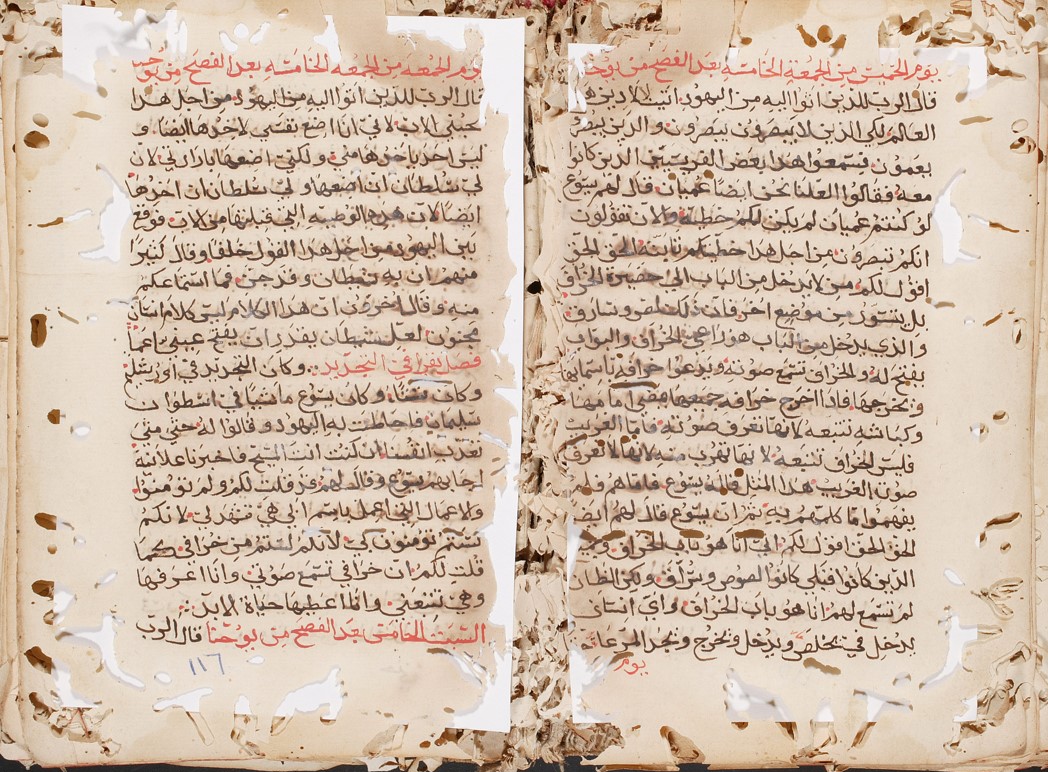 يوم الخميس من الجمعة الخامسة بعد الفصح من يوحنا
قال الرب للذين اتوا اليه من اليهود اتيت لادين هذا
العالم لكي الذين لا يبصرون يبصرون والذين يبصرون
يعمون فسمعوا هذا بعض الفريسيين الذين كانوا
معه فقالوا العلنا نحن ايضا عميان قال لهم يسوع
لو كنتم عميان لم يكن لكم خطية والان تقولون
انكم تبصرون من اجل هذا خطيتكم ثابتة الحق الحق
اقول لكم من لا يدخل من الباب الى حضيرة الخراف
بل يتسور من موضع اخر فان ذلك لص وسارق
والذي يدخل من الباب هو راعي الخراف والبواب
يفتح له والخراف تسمع صوته ويدعوا خرافه باسمايها
ويخرجها فاذا اخرج خرافه جميعها مضى امامها
وكباشه تتبعه لانها تعرف صوته فاما الغريب
فليس الخراف تتبعه لانها تهرب منه لانها لا تعرف
صوت الغريب هذا المثل قاله يسوع فاما هم فلم
يفهموا ما كلمهم به ثم ان يسوع قال لهم ايضا
الحق الحق اقول لكم اني انا هو باب الخراف وجميع
الذين كانوا قبلي كانوا لصوص وسراق ولكن الخراف
لم تسمع لهم انا هو باب الخراف واي انسان
يدخل في يخلص ويدخل ويخرج ويجد المرعا
يوم
يوم الجمعة من الجمعة الخامسة بعد الفصح من يوحنا
قال الرب للذين اتوا اليه من اليهود من اجل هذا
يحبني الاب لاني انا اضع نفسي لاخذها ايضا و
ليس احد ياخذها مني ولكني اضعها بارادتي لان
لي سلطان ان اضعها ولي سلطان ان اخذها
ايضا لان هذه الوصية التي قبلتها من الاب فوقع
بين اليهود من اجل هذا القول خلفا وقال كثيرا
منهم ان به شيطان وقد جن فما استماعكم
منه وقال اخرون ان هذا الكلام ليس كلام انسان
مجنون لعل شيطان يقدر ان يفتح عيني اعما
فصل يقرا في التجديد وكان التجديد في اورشليم
وكان شتاء وكان يسوع ماشيا في اسطوان
سليمان فاحاطت به اليهود وقالوا له حتى متى
تعذب انفسنا ان كنت انت المسيح فاخبرنا علانية
اجابهم يسوع وقال لهم قد قلت لكم ولم تومنوا
والاعمال التي اعمل باسم ابي هي تشهد لي لانكم
لستم تومنون بي لانكم لستم من خرافي كما
قلت لكم ان خرافي تسمع صوتي وانا اعرفها
وهي تتبعني وانا اعطيها حياة الابد
السبت الخامس بعد الفصح من يوحنا قال الرب
١١٦